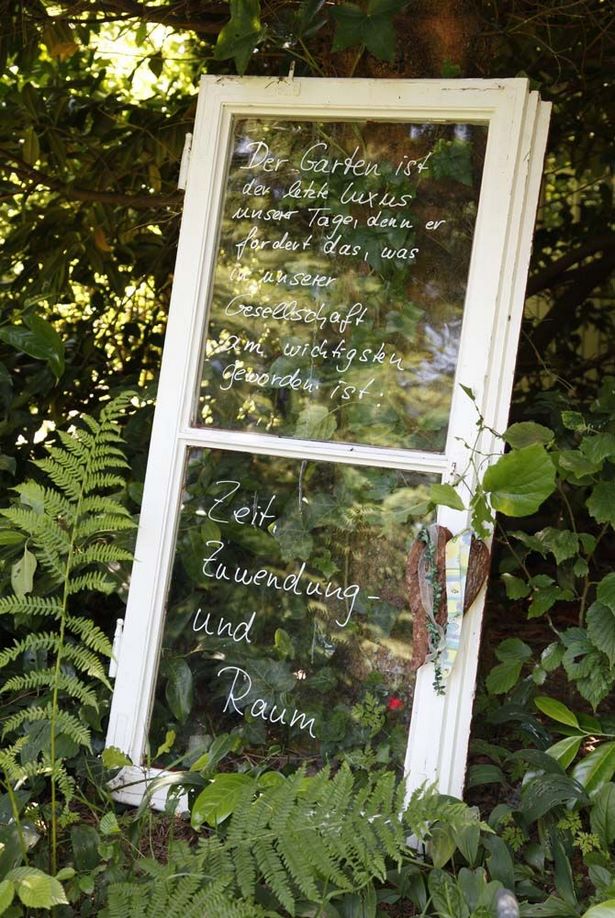 Der Garten ist
der letzte Luxus
unserer Tage, denn er
fordert das, was
in unserer
Gesellschaft
am wichtigsten
geworden ist:
Zeit,
Zuwendung -
und
Raum